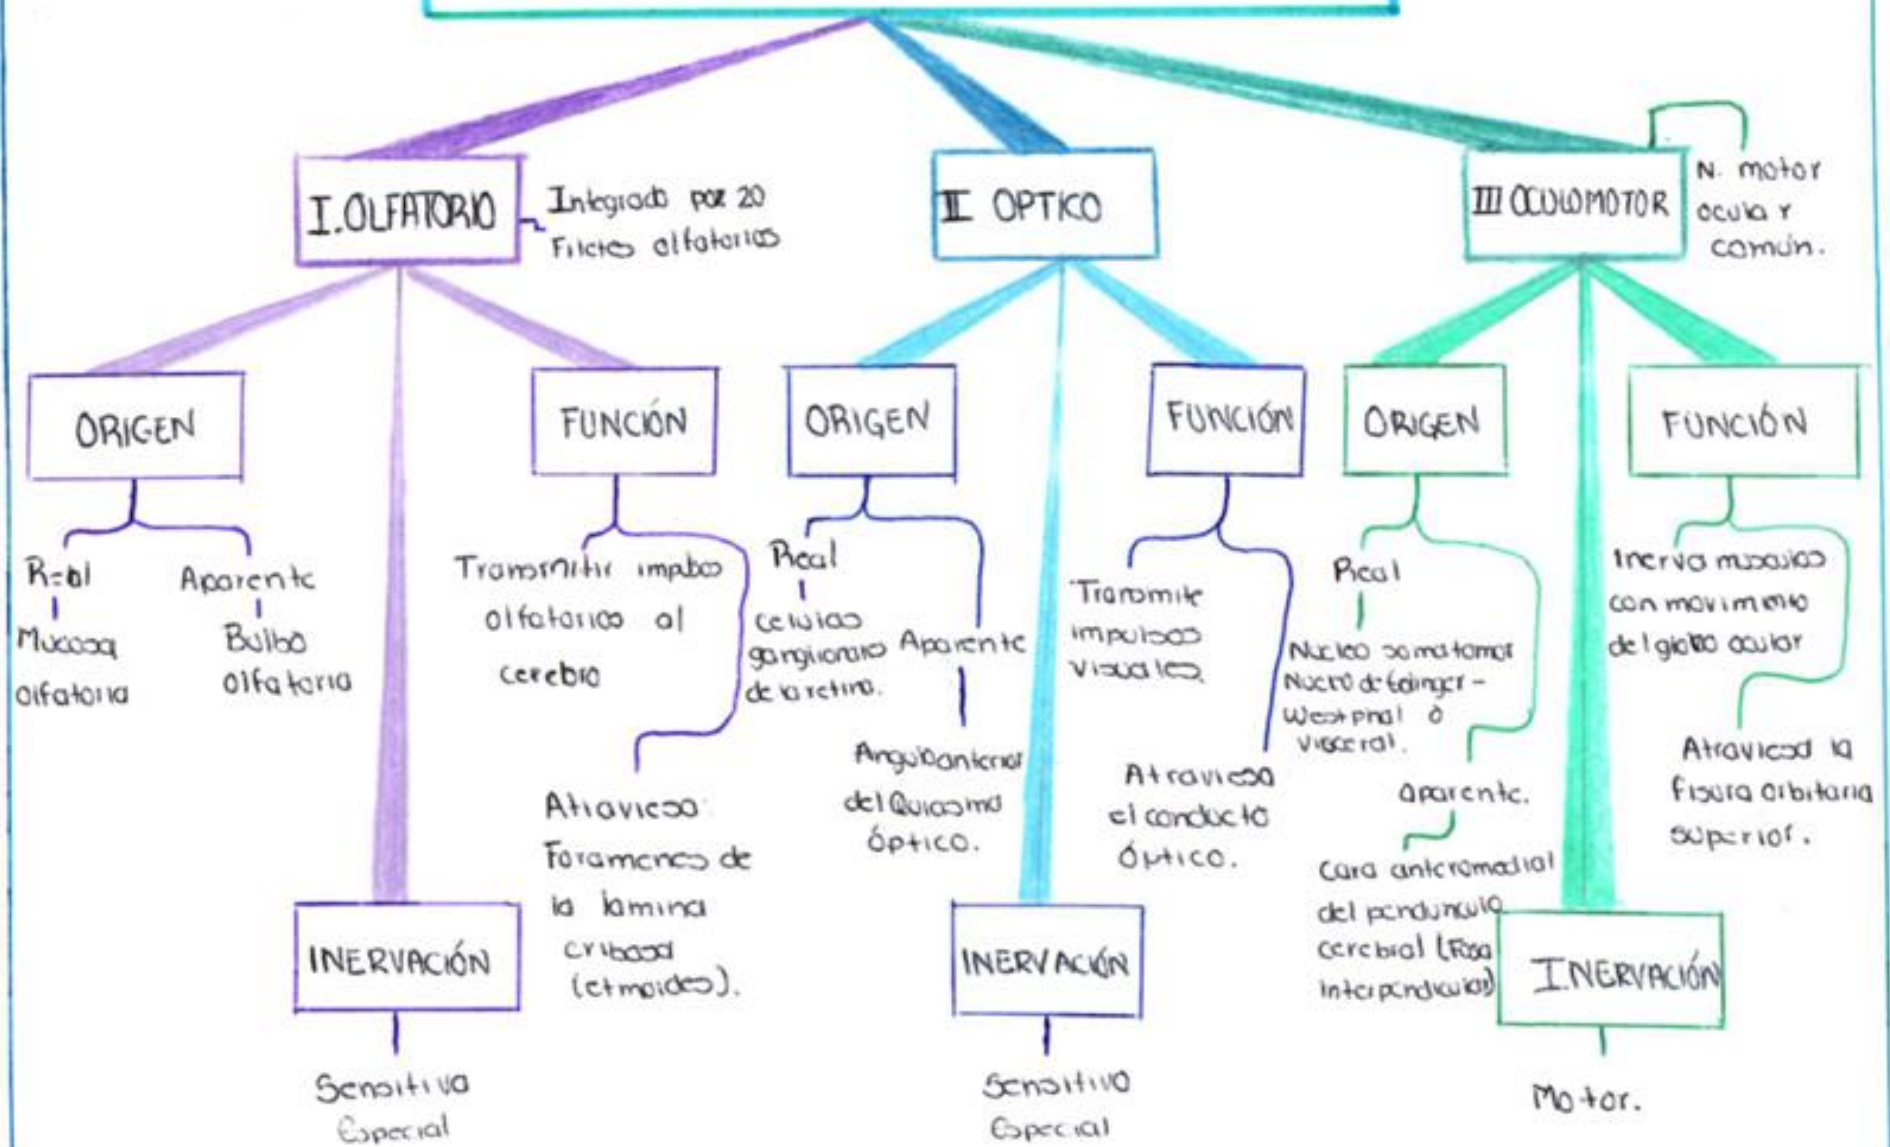 I. OLFATORIO
Integrado por 20
Filetes olfatorios
II OPTICO
III OCULOMOTOR
N. motor
ocular
común.
ORIGEN
Real
Mucosa
olfatoria
Aparente
Bulbo
olfatoria
FUNCIÓN
Transmitir impulsos
olfatorios al
cerebro
Atraviesa:
Foramenes de
la lamina
cribosa
(etmoides).
INERVACIÓN
Sensitiva
Especial
ORIGEN
Real
celulas
ganglionares
de la retina.
Aparente
Angulo anterior
del Quiasma
óptico.
FUNCIÓN
Transmite
impulsos
visuales.
Atraviesa
el conducto
óptico.
INERVACIÓN
Sensitivo
Especial
ORIGEN
Real
Nucleo somatomor
Nucleo de Edinger-
Westphal o
visceral.
aparente.
Cara anteromedial
del pendunculo
cerebral (Fosa
Interpendicular)
FUNCIÓN
Inerva musculos
con movimiento
del globo ocular
Atraviesa la
fisura orbitaria
superior.
INERVACIÓN
Motor.